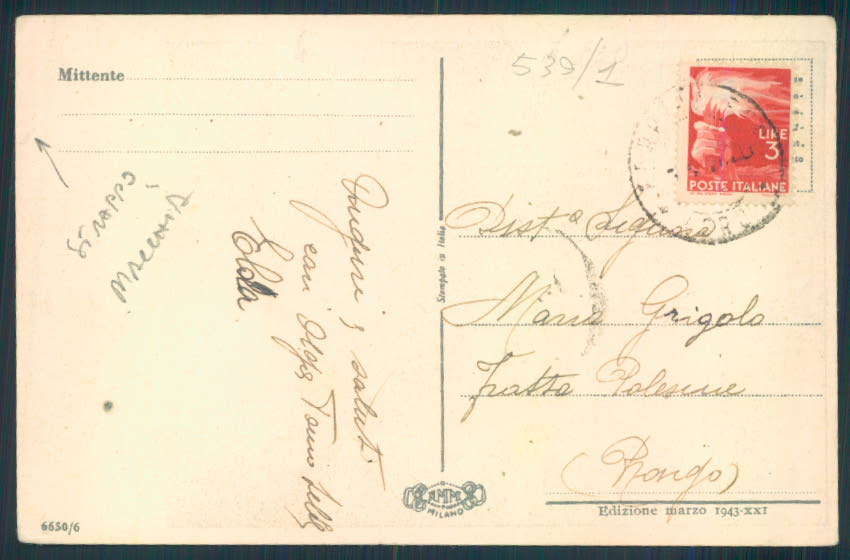 Mittente
539/1
LIRE
3
POSTE ITALIANE
STRAPPO
MACCHIA
Auguri e saluti
Elda
Stampato in Italia
Dist.a Signora
Maria Grigolo
Fratta Polesine
(Rovigo)
AMM
MILANO
Edizione marzo 1943-XXI
6650/6